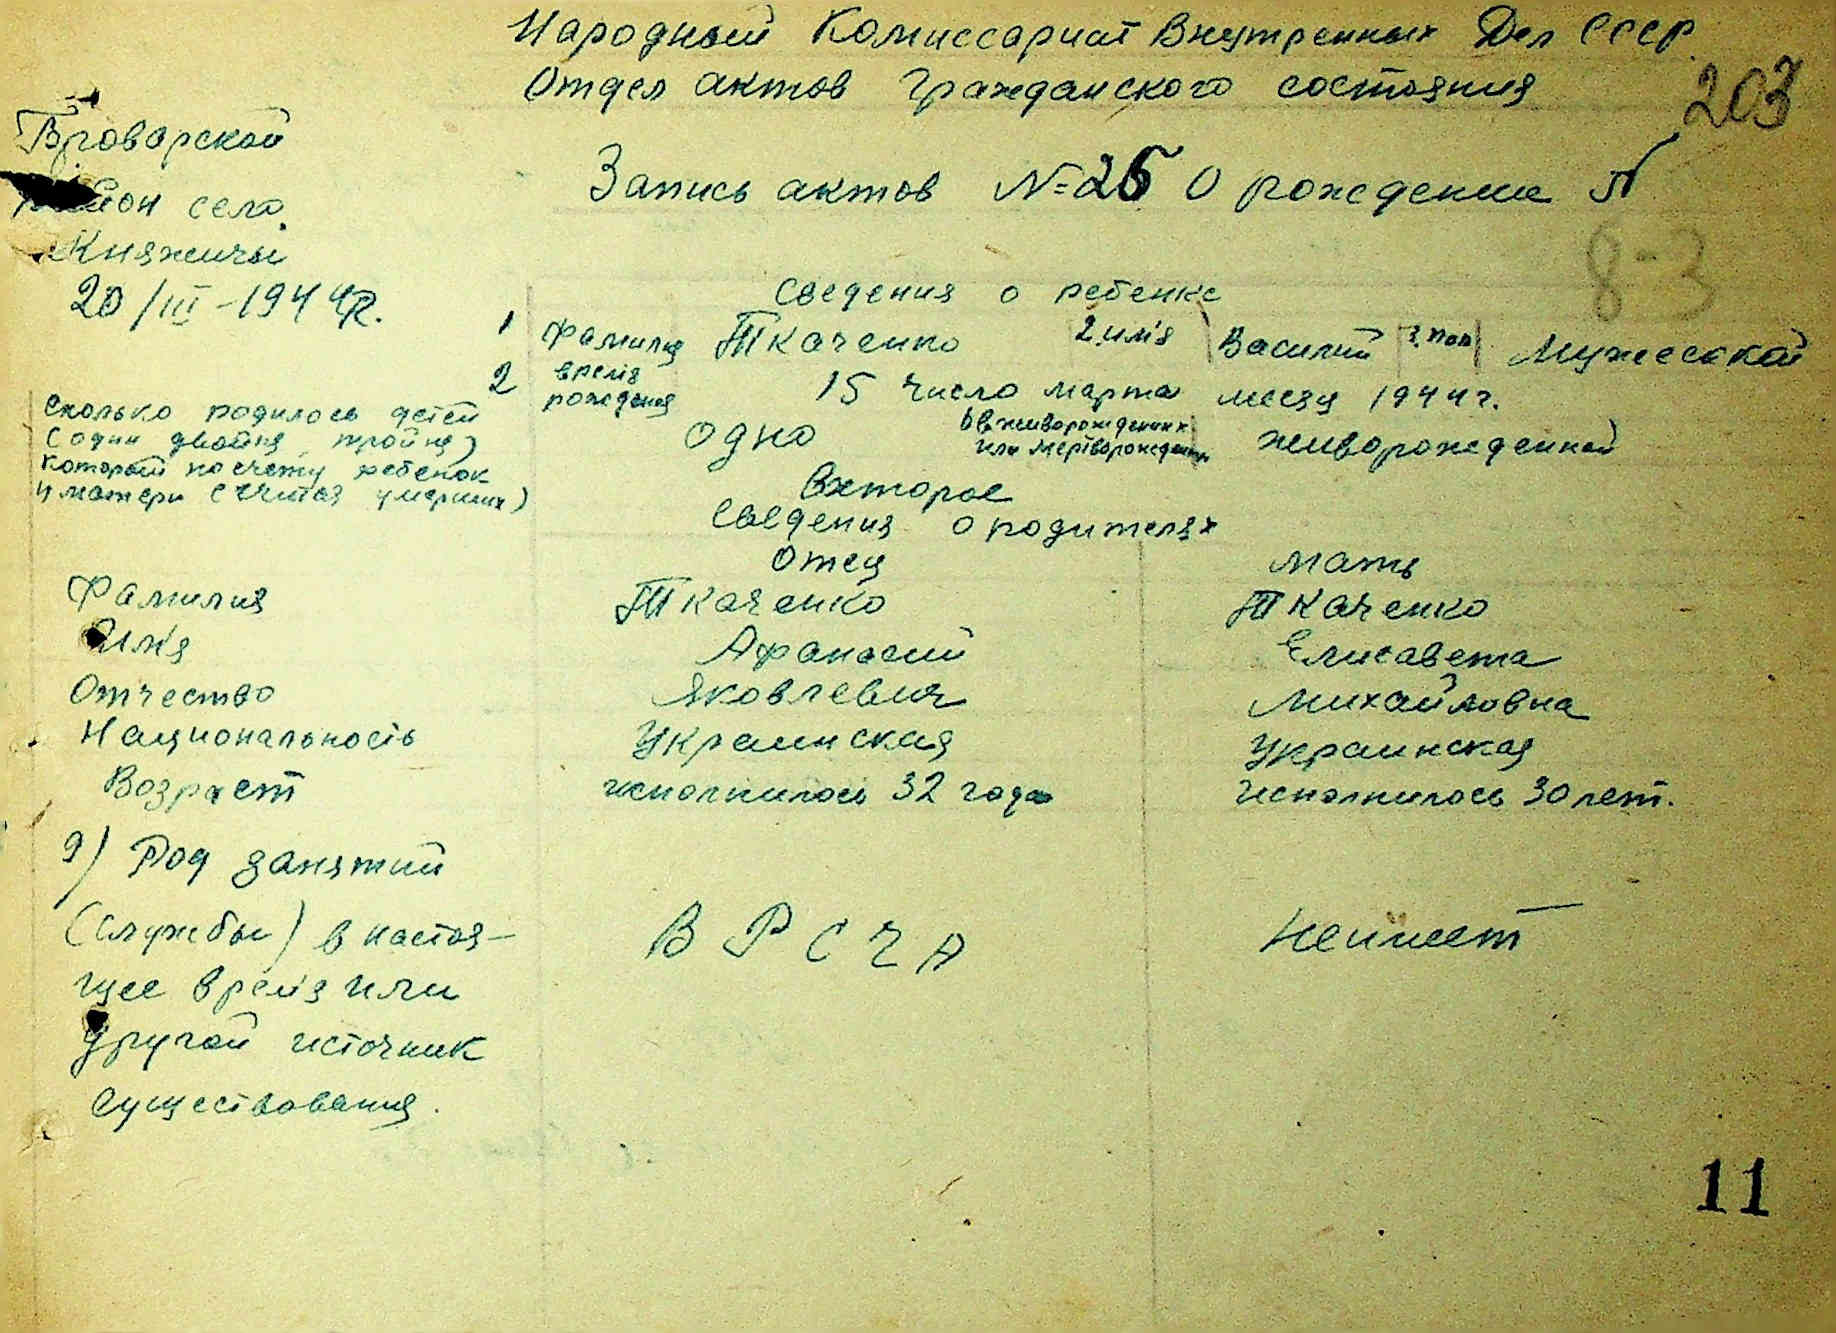 Народный Комиссариат Внутренных Дел СССР
Отдел актов Гражданского состояния
203
Броварской
район село
Княжичи
20/III-1944 г.
Запись актов №26 О рождении
8-3
Сведения о ребенке
1 фамилия Ткаченко 2. имя Василий 3. пол Мужеской
2 время рождения 15 число марта месяц 1944 г.
Сколько родилось детей
(один двойня, тройня) одно 6 в живорожденных или мертворожденн живорожденной
который по счету ребенок
у матери (считая умерших) Второе
Сведения о родителях
Отец Мать
Фамилия Ткаченко Ткаченко
Имя Афанасий Елисавета
Отчество Яковлевич Михайловна
Националность Украинская Украинская
Возраст исполнилось 32 года исполнилось 30 лет.
9) Род занятий
(службы) в настоя-
щее время или В Р С Ч А Неимеет
другой источник
существования.
11